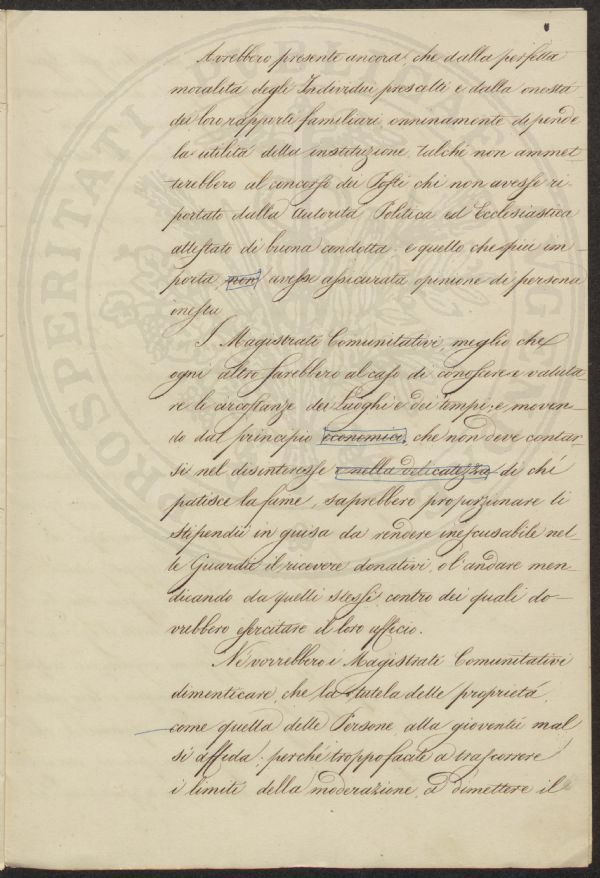 Avrebbero presente ancora, che dalla perfetta
moralità degli Individui prescelti e dalla onestà
dei loro rapporti familiari onninamente dipende
la utilità della instituzione, talchè non ammet-
terebbero al concorso dei Posti chi non avesse ri-
portato dalla Autorità Politica ed Ecclesiastica
attestato di buona condotta: e quello che più im-
porta, non avesse assicurata opinione di persona
onesta
I Magistrati Comunitativi, meglio che
ogni altro sarebbero al caso di conoscere e valuta-
re le circostanze dei Luoghi e dei tempi; e moven-
do dal principio economico, che non deve contar-
si nel disinteresse e nella delicatezza di chi
patisce la fame, saprebbero proporzionare li
stipendii in guisa da rendere inescusabile nel-
le Guardie il ricevere donativi, o l'andare men-
dicando da quelli stessi, contro dei quali do-
vrebbero esercitare il loro ufficio.
Nè vorrebbero i Magistrati Comunitativi
dimenticare, che la tutela delle proprietà,
come quella delle Persone, alla gioventù mal
si affida; perchè troppo facile a trascorrere
i limiti della moderazione, a dimettere il
PROSPERITATI PUBLICAE